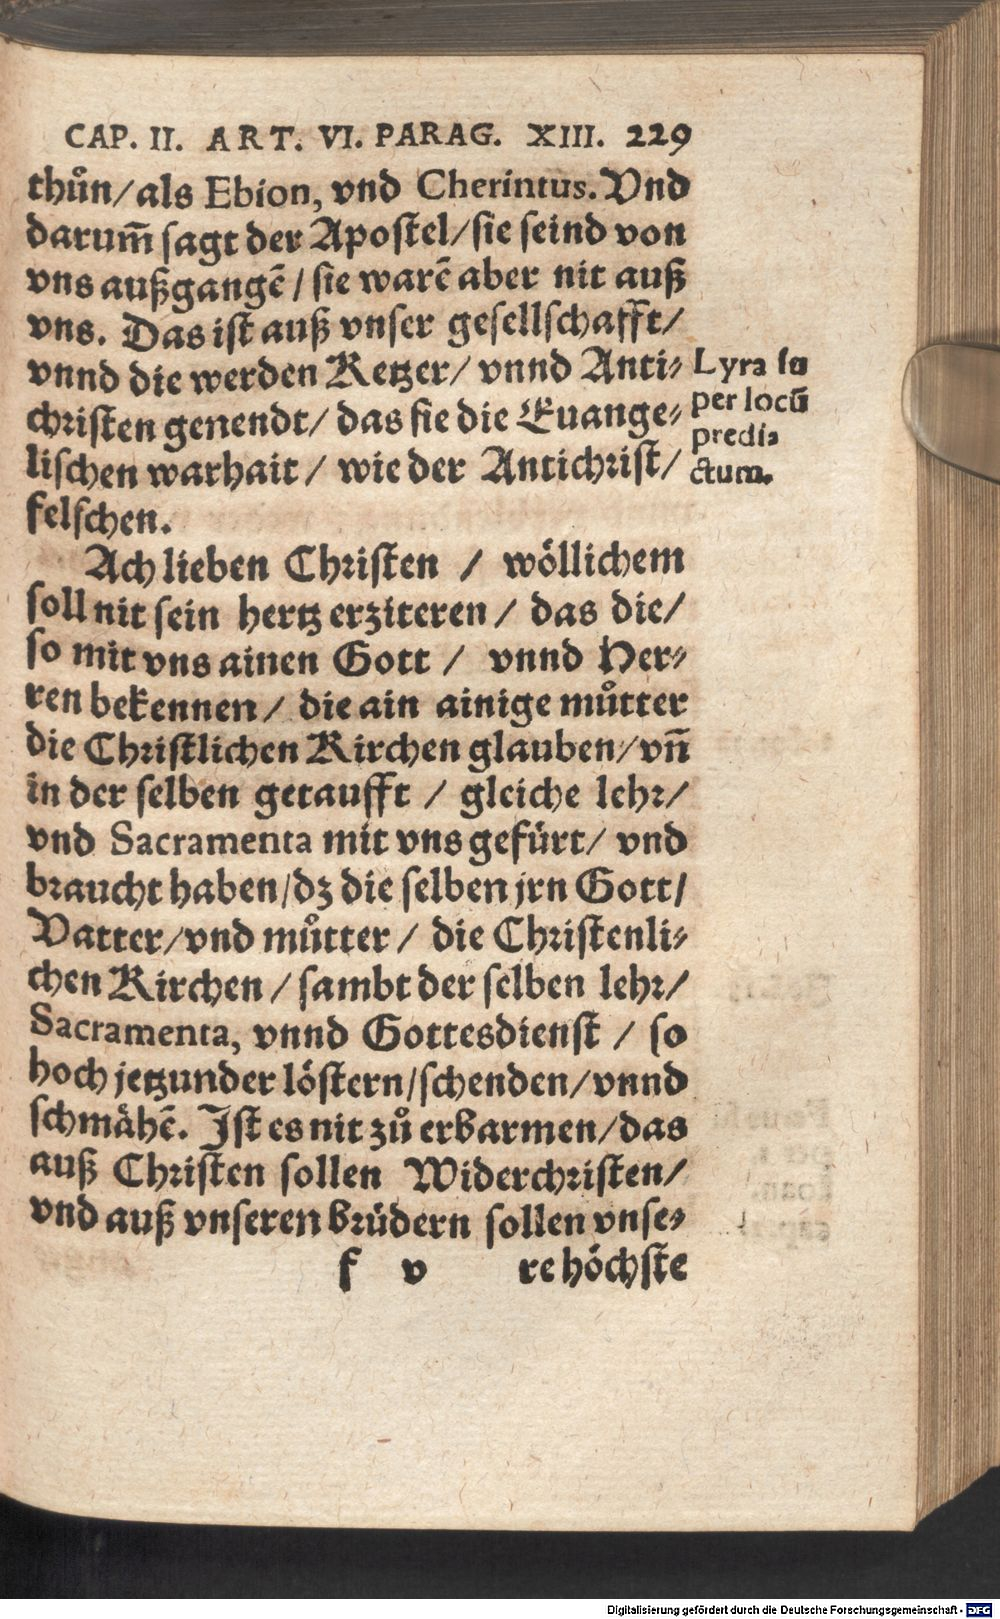 CAP. II. ART. VI. PARAG. XIII. 229
thůn/als Ebion, vnd Cherintus. Vnd
darum̃ sagt der Apostel/sie seind von
vns außgangẽ/sie warẽ aber nit auß
vns. Das ist auß vnser gesellschafft/
vnnd die werden Ketzer/ vnnd Anti⸗
christen genendt/ das sie die Euange⸗
lischen warhait/ wie der Antichrist/
felschen.
Lyra su
per locũ
predi⸗
ctum.
Ach lieben Christen / wöllichem
soll nit sein hertz erziteren/ das die/
so mit vns ainen Gott / vnnd Her⸗
ren bekennen/ die ain ainige můtter
die Christlichen Kirchen glauben/vñ
in der selben getaufft / gleiche lehr/
vnd Sacramenta mit vns gefürt/ vnd
braucht haben/dz die selben jrn Gott/
Vatter/vnd můtter/ die Christenli⸗
chen Kirchen/sambt der selben lehr/
Sacramenta, vnnd Gottesdienst / so
hoch jetzunder löstern/schenden/vnnd
schmähẽ. Ist es nit zů erbarmen/das
auß Christen sollen Widerchristen/
vnd auß vnseren brüdern sollen vnse⸗
f v re höchste
Digitalisierung gefördert durch die Deutsche Forschungsgemeinschaft - DFG